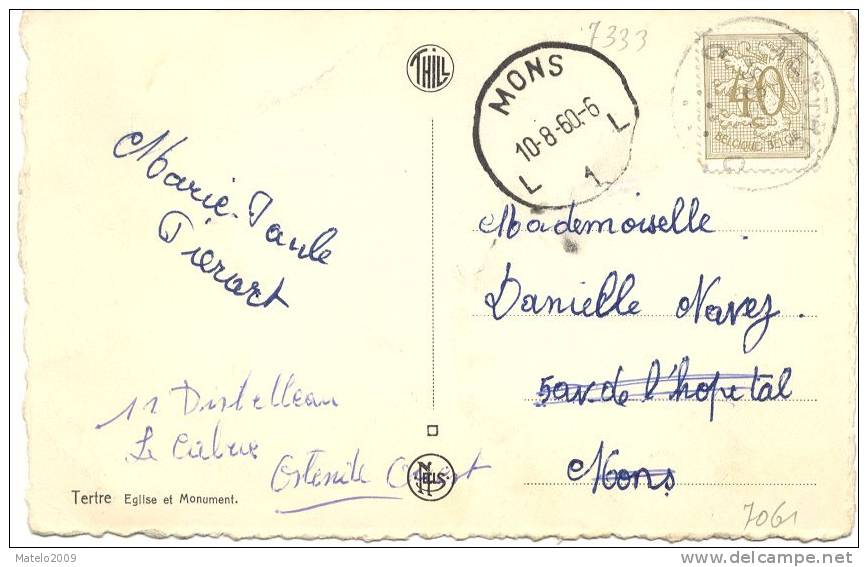 7333
THILL
MONS
10-8-60.-6
L 1 L
TERTRE
40
BELGIQUE-BELGIE
Marie-Paule
Pierart
Mademoiselle
Danielle Navez.
5 av. de l'hopital
Mons
11
Le
NELS
Tertre Eglise et Monument.
7061
Matelo2009
www.delcampe.net